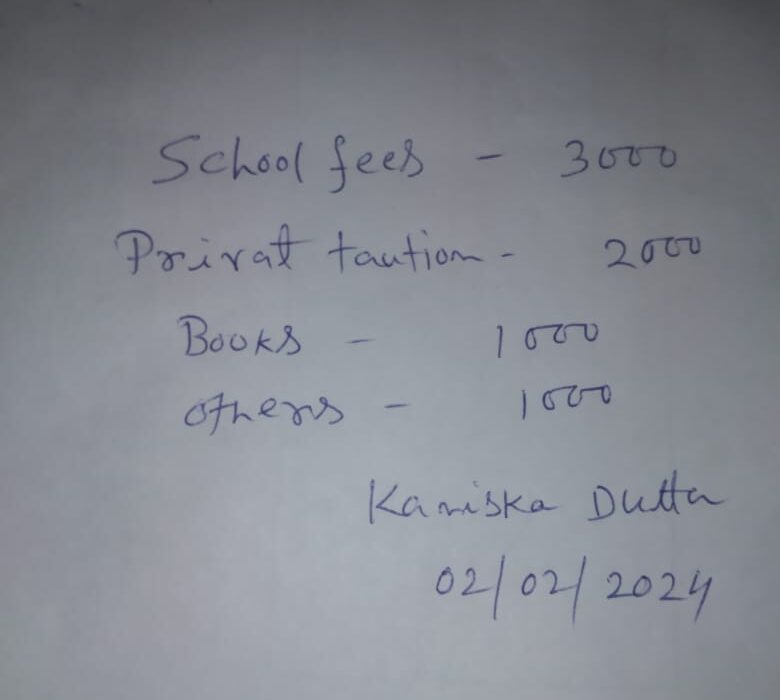 School fees - 3000
Privat taution - 2000
Books - 1000
others - 1000
Kaniska Dutta
02/02/2024